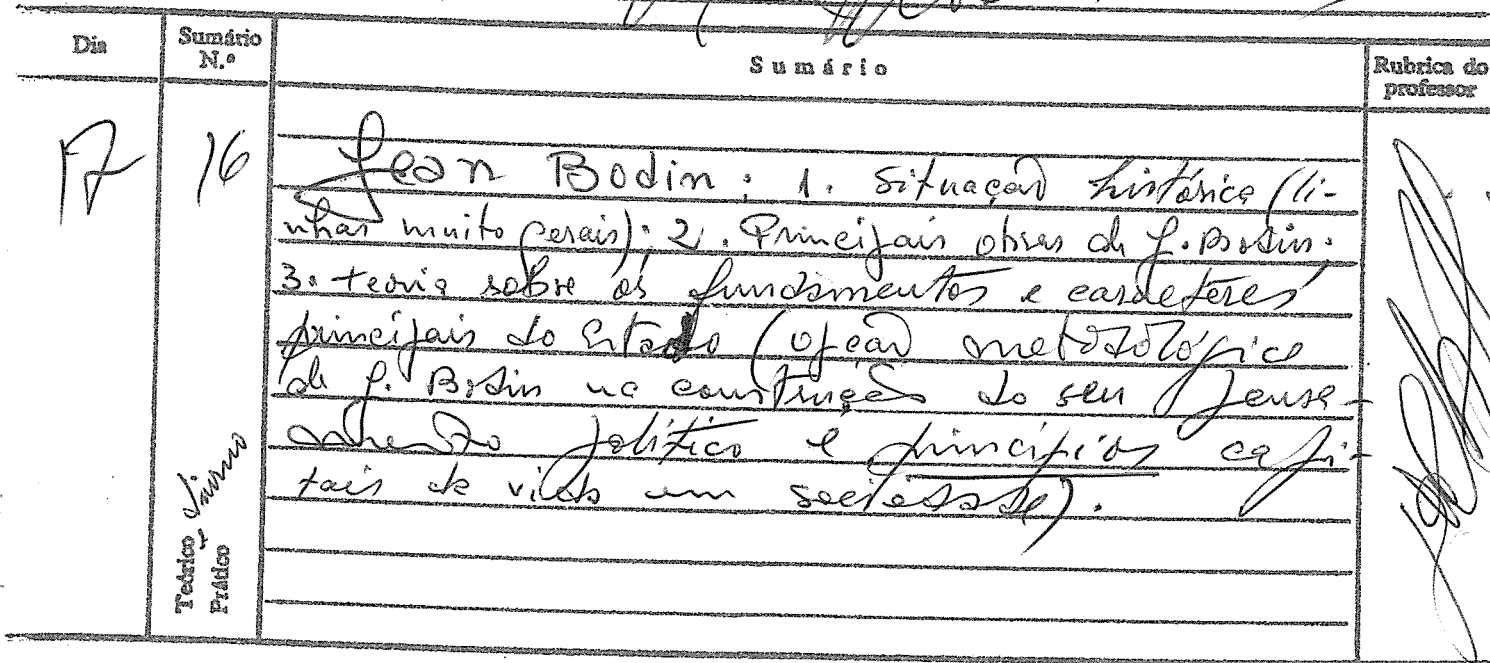 Dia
Sumário
N.º
Sumário
Rubrica do
professor
17
16
Jean Bodin: 1. Situação histórica (li-
nhas muito gerais); 2. Principais obras de J. Bodin.
3. teoria sobre os fundamentos e caracteres
principais do Estado (opção metodológica
de J. Bodin na construção do seu pensa-
mento político e princípios capi-
tais de vida em sociedade).
Teórico
Prático
diurno